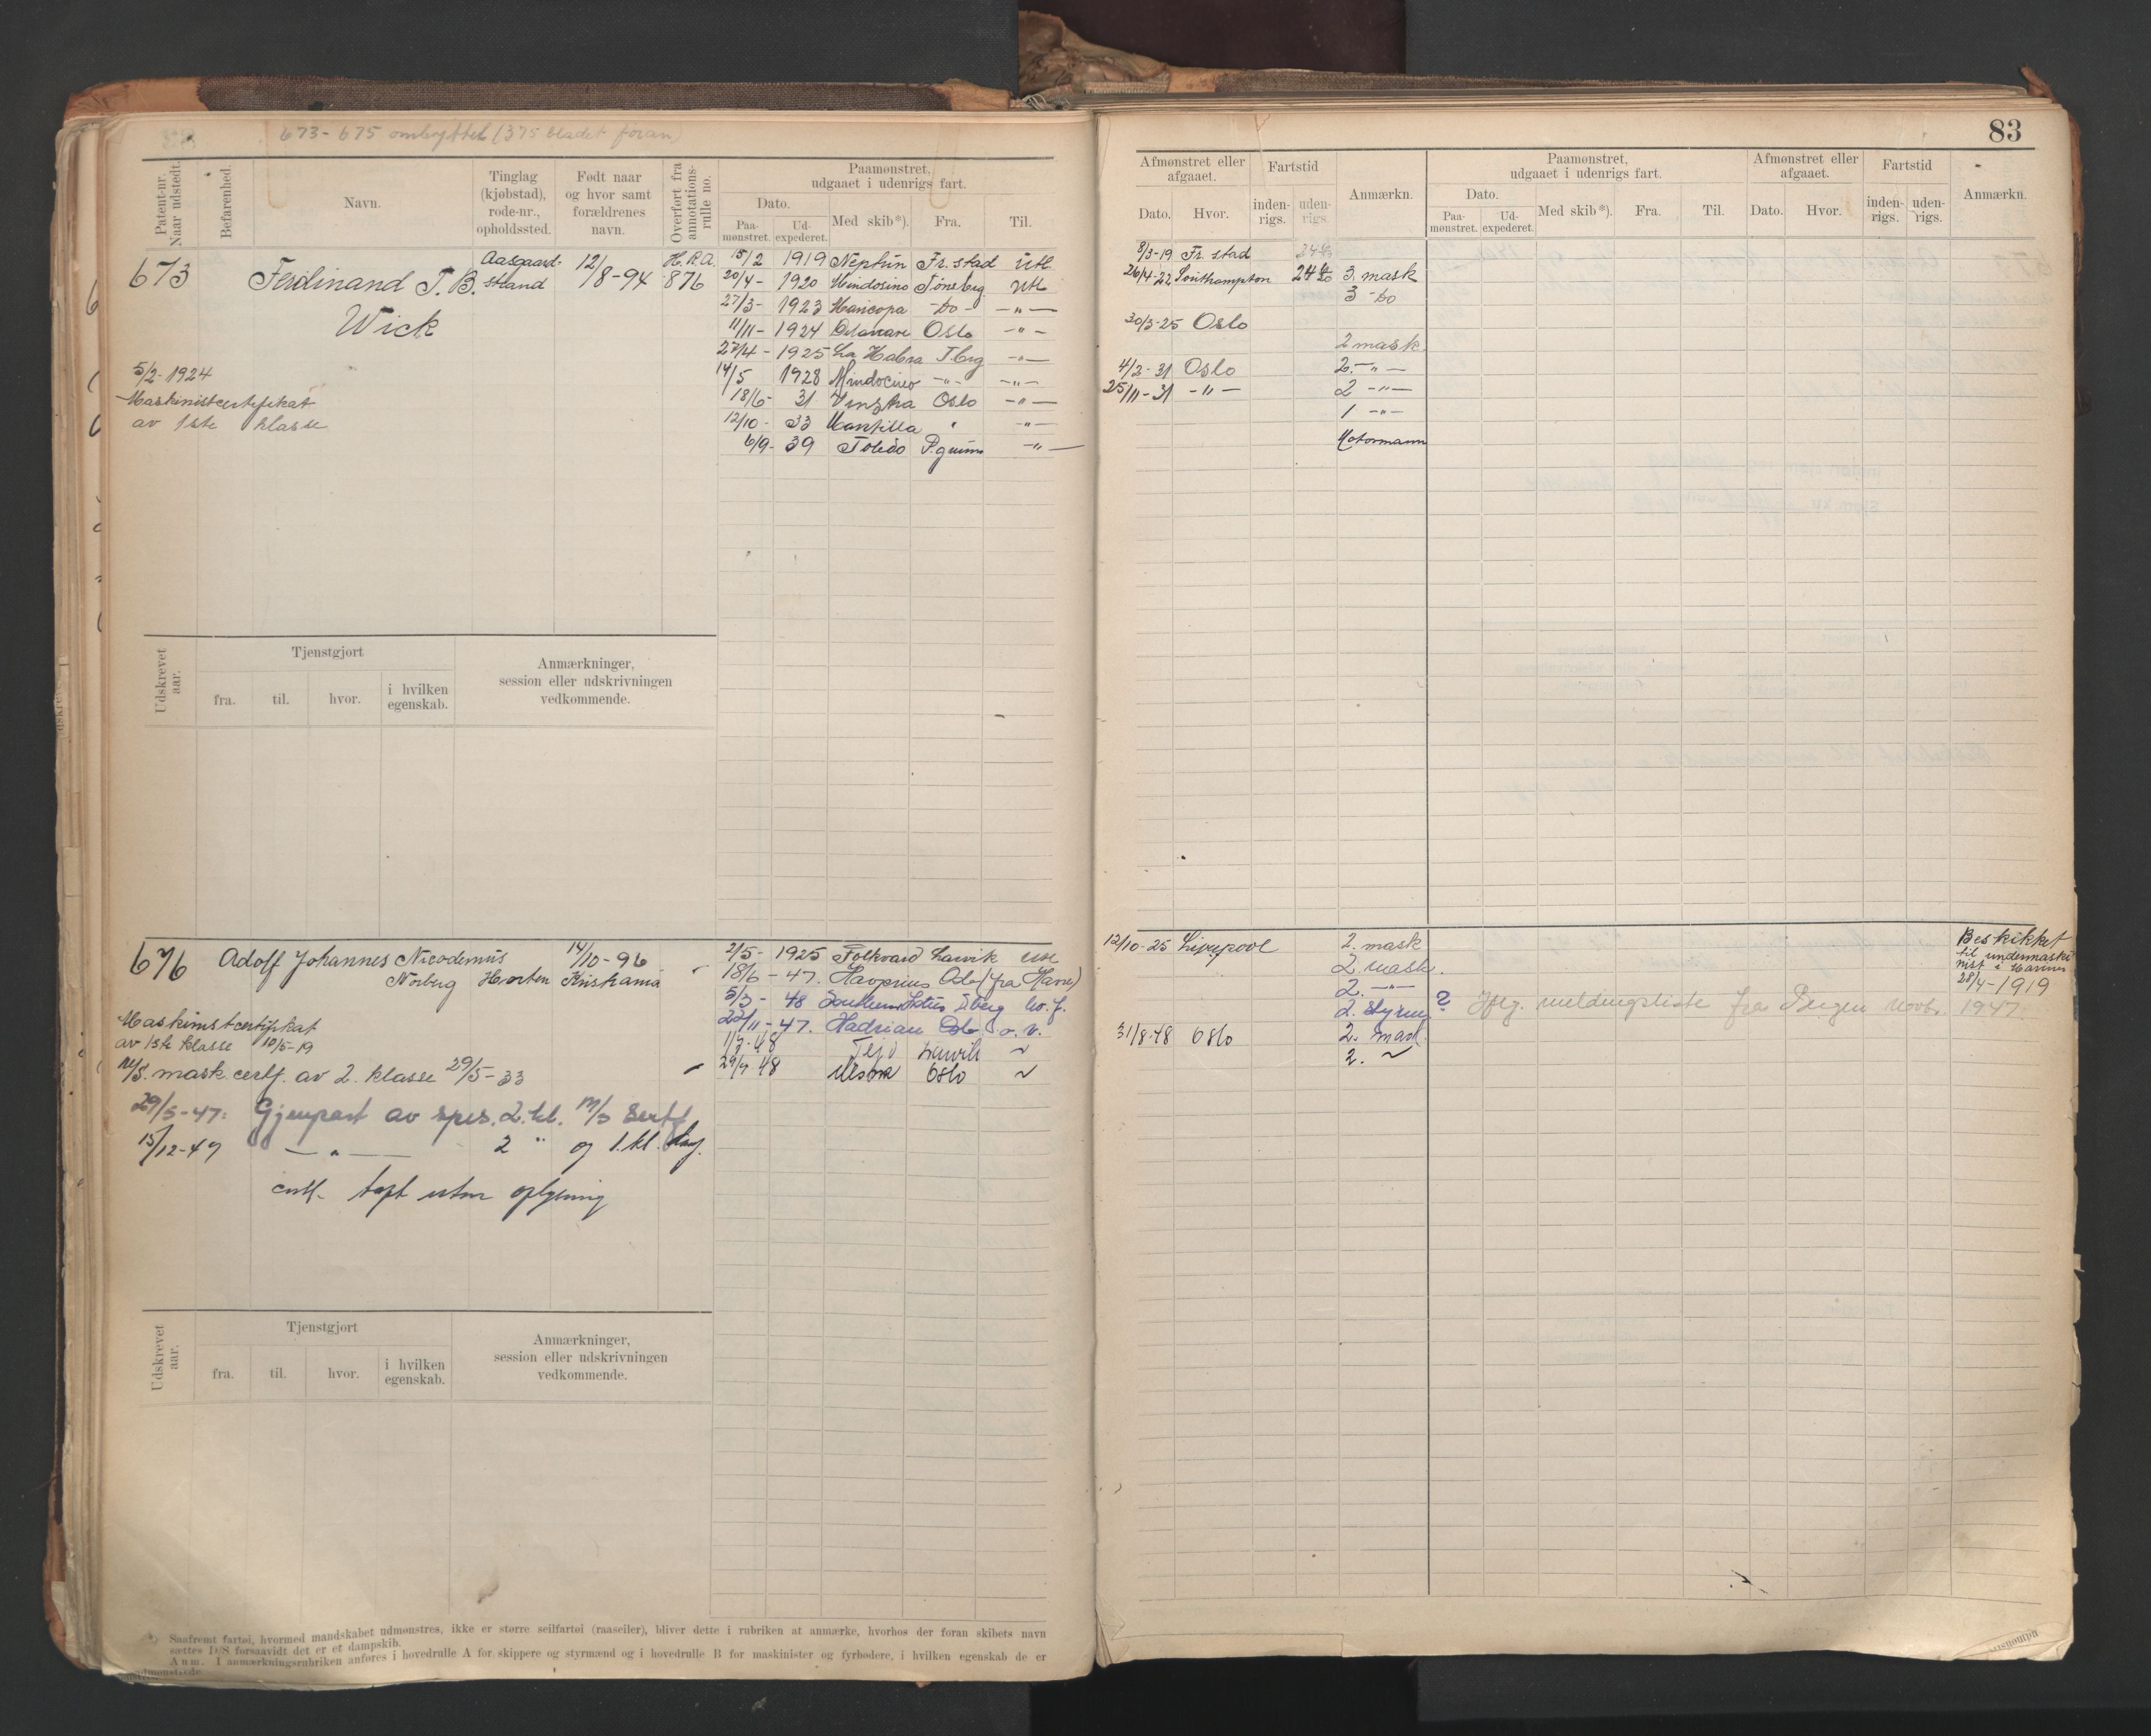 673-675 ombyttet (375 bladet foran)
83
Patent-nr. Naar udstedt.
Befarenhed.
Navn.
Tinglag (kjøbstad), rode-nr., opholdssted.
Født naar og hvor samt forældrenes navn.
Overført fra annotations-rulle no.
Paamønstret, udgaaet i udenrigs fart.
Dato.
Paa-mønstret.
Ud-expederet.
Med skib*).
Fra.
Til.
673 Ferdinand T. B. Wick
Aasgaard-strand
12/8-94
H.R.A. 876
5/2-1924
Maskinistcertifikat
av 1ste klasse
15/2 1919 Neptun Fr.stad Utl.
20/4- 1920 Mindosino Tönsberg Utl
27/3- 1923 Maricopa -do- -"-
11/11- 1924 Delaware Oslo -"-
27/4- 1925 La Habra Tbrg -"-
14/5 1928 Mindocino -"- -"-
18/6- 31 Vinstra Oslo -"-
12/10- 33 Mantilla " -"-
6/9- 39 Toledo P.grunn -"-
Udskrevet aar.
Tjenstgjort
fra.
til.
hvor.
i hvilken egenskab.
Anmærkninger, session eller udskrivningen vedkommende.
676 Adolf Johannes Nicodemus
Norberg Horten
14/10-96
Kristiania
Maskinistcertifikat
av 1ste klasse 10/5-19
M/S. mask.certf. av 2. klasse 29/5-33
29/5-47: Gjenpart av spes. 2. kl. M/S Sertf.
15/12-49 -"- 2 " og 1. kl. damp.
certf. tapt
2/5- 1925 Folkvard Larvik
18/6- 47. Havprins Oslo (fra Havre)
5/3- 48 Southern Lotus Tberg
22/11-47. Hadrian Oslo o. v.
1/7-48 Tejo Larvik ~
29/9 48 Oslo ~
Udskrevet aar.
Tjenstgjort
fra.
til.
hvor.
i hvilken egenskab.
Anmærkninger, session eller udskrivningen vedkommende.
*) Saafremt fartøi, hvormed mandskabet udmønstres, ikke er større seilfartøi (raaseiler), bliver dette i rubriken at anmærke, hvorhos der foran skibets navn
sættes D/S forsaavidt det er et dampskib.
Anm. I anmærkningsrubriken anføres i hovedrulle A for skippere og styrmænd og i hovedrulle B for maskinister og fyrbødere, i hvilken egenskab de er
Afmønstret eller afgaaet.
Fartstid
Anmærkn.
Paamønstret, udgaaet i udenrigs fart.
Afmønstret eller afgaaet.
Fartstid
Anmærkn.
Dato.
Hvor.
inden-rigs.
uden-rigs.
Dato.
Paa-mønstret.
Ud-expederet.
Med skib*).
Fra.
Til.
Dato.
Hvor.
inden-rigs.
uden-rigs.
8/3-19 Fr. stad
26/4-22 Southampton 3. mask
3 -do
30/3-25 Oslo
2 mask.
4/2-31 Oslo 2.-"-
25/11-31 -"- 2 -"-
1 -"-
Motormann
12/10-25 Liverpool 2. mask
2 mask.
2. -"-
2. Styrm. ? Iflg. meldingsliste fra Bergen Novbr. 1947
31/8-48 Oslo 2. mask.
2. ~
Beskikket
til undermaski
nist i Marinen
28/4-1919